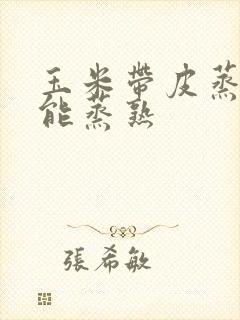 玉米帶皮蒸
能蒸熟
張希敏